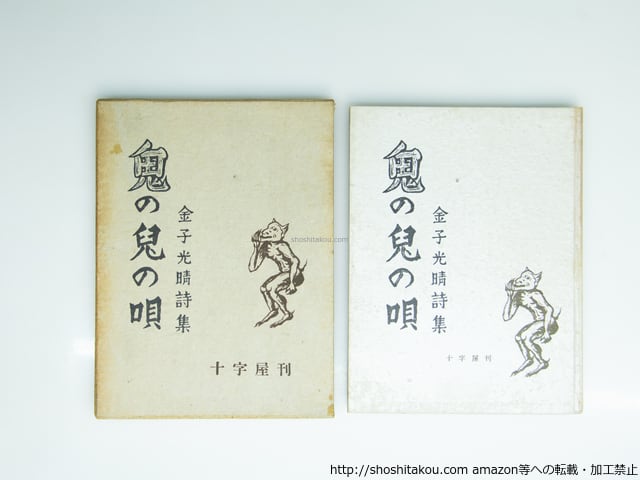 鬼の兒の唄
金子光晴詩集
十字屋刊
shoshitakou.com
鬼の兒の唄
金子光晴詩集
十字屋刊
http://shoshitakou.com amazon等への転載・加工禁止